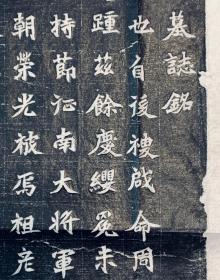 墓誌銘
也自後禝命周
踵茲餘慶纓冕未
持節征南大將軍
朝榮光被焉祖彦